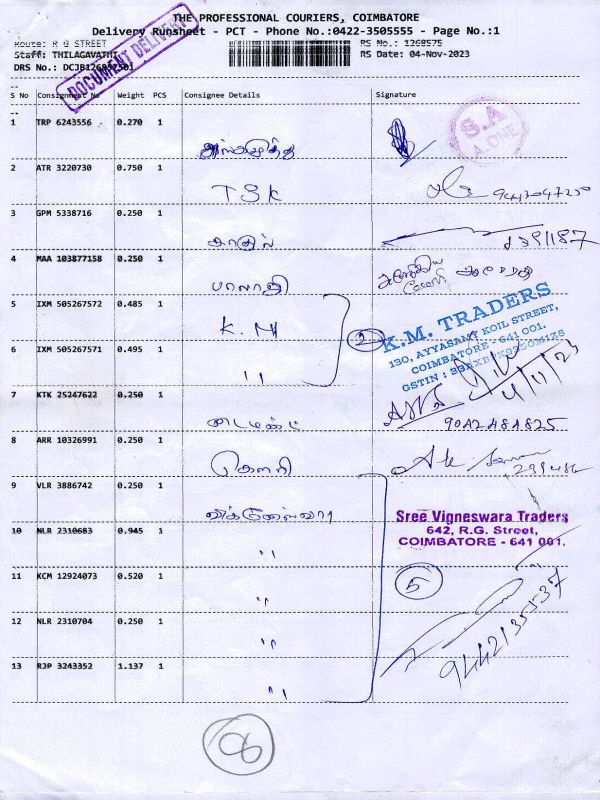 THE PROFESSIONAL COURIERS, COIMBATORE
Delivery Runsheet - PCT - Phone No.:0422-3505555 - Page No.:1
Route: R G STREET
RS No.: 1268575
Staff: THILAGAVATHI
RS Date: 04-Nov-2023
DRS No.:
DOCUMENT DELIVERY
S No Consignment No Weight PCS Consignee Details Signature
S.A
A.ONE
1 TRP 6243556 0.270 1
2 ATR 3220730 0.750 1 TSK
3 GPM 5338716 0.250 1
4 MAA 103877158 0.250 1 பாலாஜி
5 IXM 505267572 0.485 1 K.M
2
K.M. TRADERS
130, AYYASAMY KOIL STREET,
COIMBATORE - 641 001.
GSTIN :
6 IXM 505267571 0.495 1 "
4/11/23
7 KTK 25247622 0.250 1 டைமண்ட்
9042484825
8 ARR 10326991 0.250 1 கௌரி
9 VLR 3886742 0.250 1
Sree Vigneswara Traders
642, R.G. Street,
COIMBATORE - 641 001.
10 NLR 2310683 0.945 1 "
11 KCM 12924073 0.520 1 "
5
12 NLR 2310704 0.250 1 "
9442135537
13 RJP 3243352 1.137 1 "